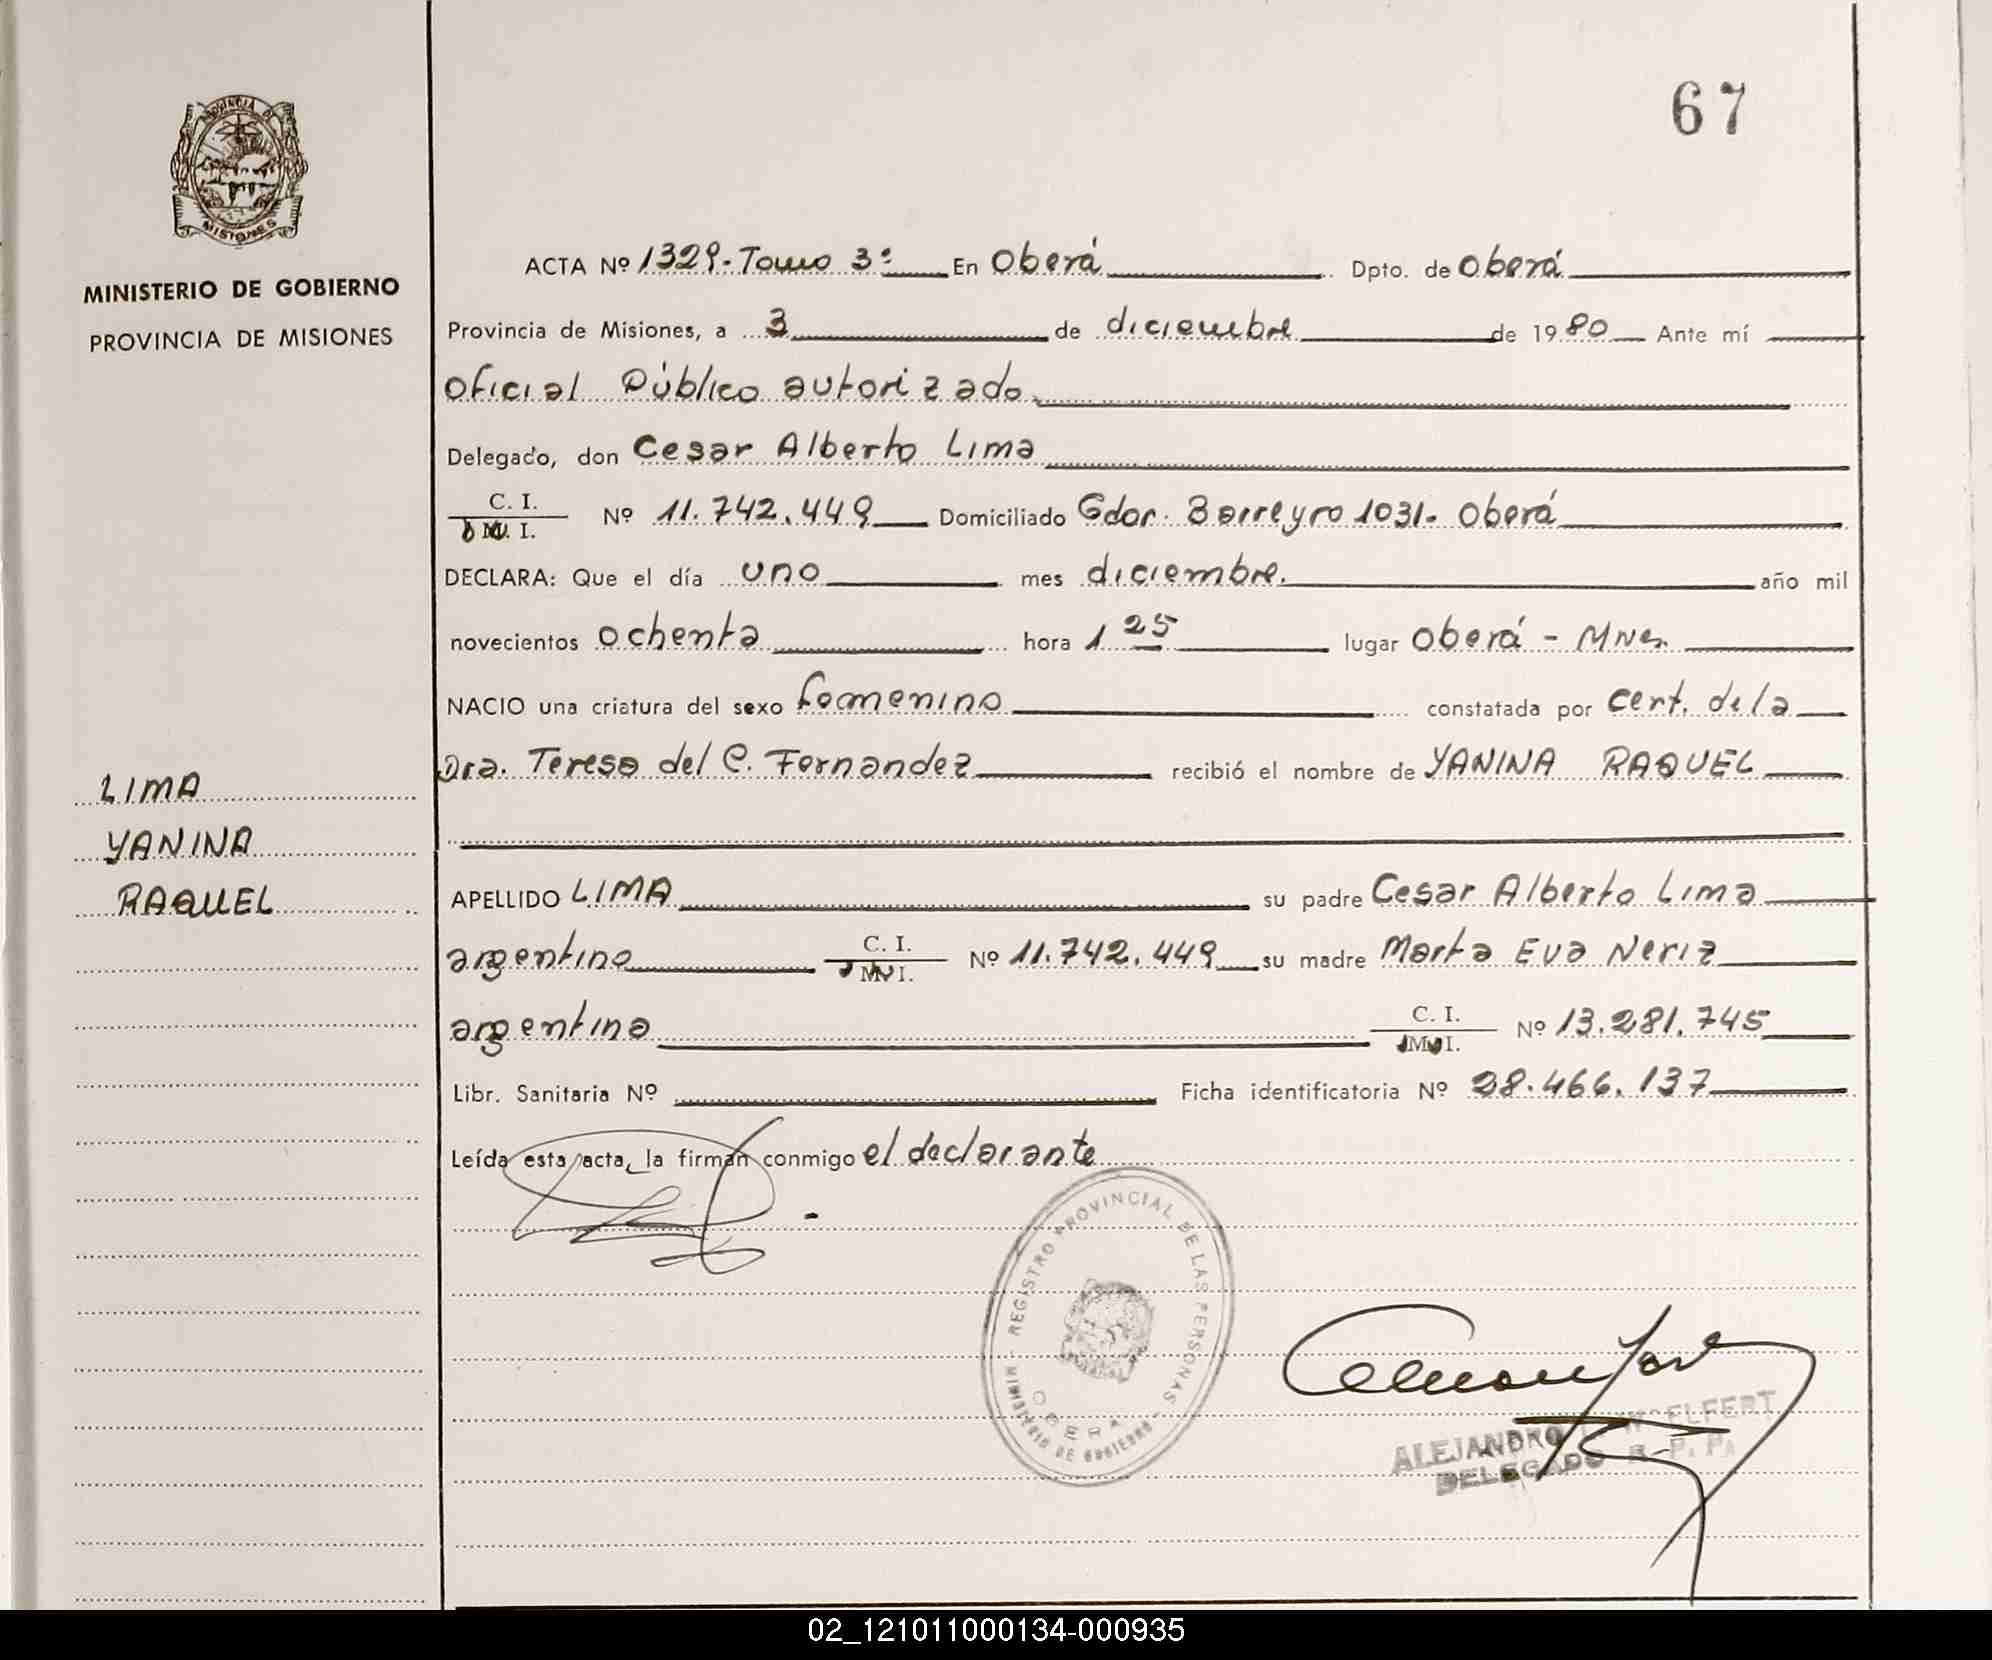 67
PROVINCIA DE
MISIONES
MINISTERIO DE GOBIERNO
PROVINCIA DE MISIONES
ACTA Nº 1329-Tomo 3º En Oberá Dpto. de Oberá
Provincia de Misiones, a 3 de diciembre de 1980 Ante mí
Oficial Público autorizado
Delegado, don Cesar Alberto Lima
C. I.
M. I. Nº 11.742.449 Domiciliado Gdor. Barreyro 1031- Oberá
DECLARA: Que el día uno mes diciembre año mil
novecientos ochenta hora 1 25 lugar Oberá - Mnes
NACIO una criatura del sexo femenino constatada por cert. de la
Dra. Teresa del C. Fernandez recibió el nombre de YANINA RAQUEL
LIMA
YANINA
RAQUEL
APELLIDO LIMA su padre Cesar Alberto Lima
argentino C. I.
M. I. Nº 11.742.449 su madre Marta Eva Neriz
argentina C. I.
M. I. Nº 13.281.745
Libr. Sanitaria Nº Ficha identificatoria Nº 28.466.137
Leída esta acta, la firman conmigo el declarante
REGISTRO PROVINCIAL DE LAS PERSONAS
OBERA
MINISTERIO DE GOBIERNO
ALEJANDRO WELFERT
DELEGADO R. P. P.
02_121011000134-000935